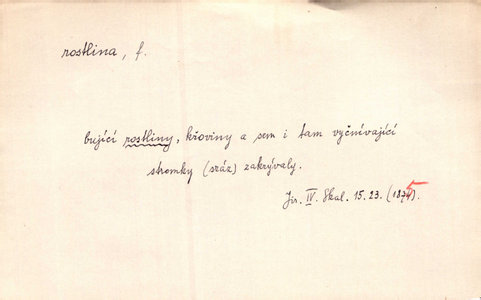 rostlina, f.
bující rostliny, křoviny a sem i tam vyčnívající
stromky (sráz) zakrývaly.
Jir. IV. Skal. 15. 23. (1874).